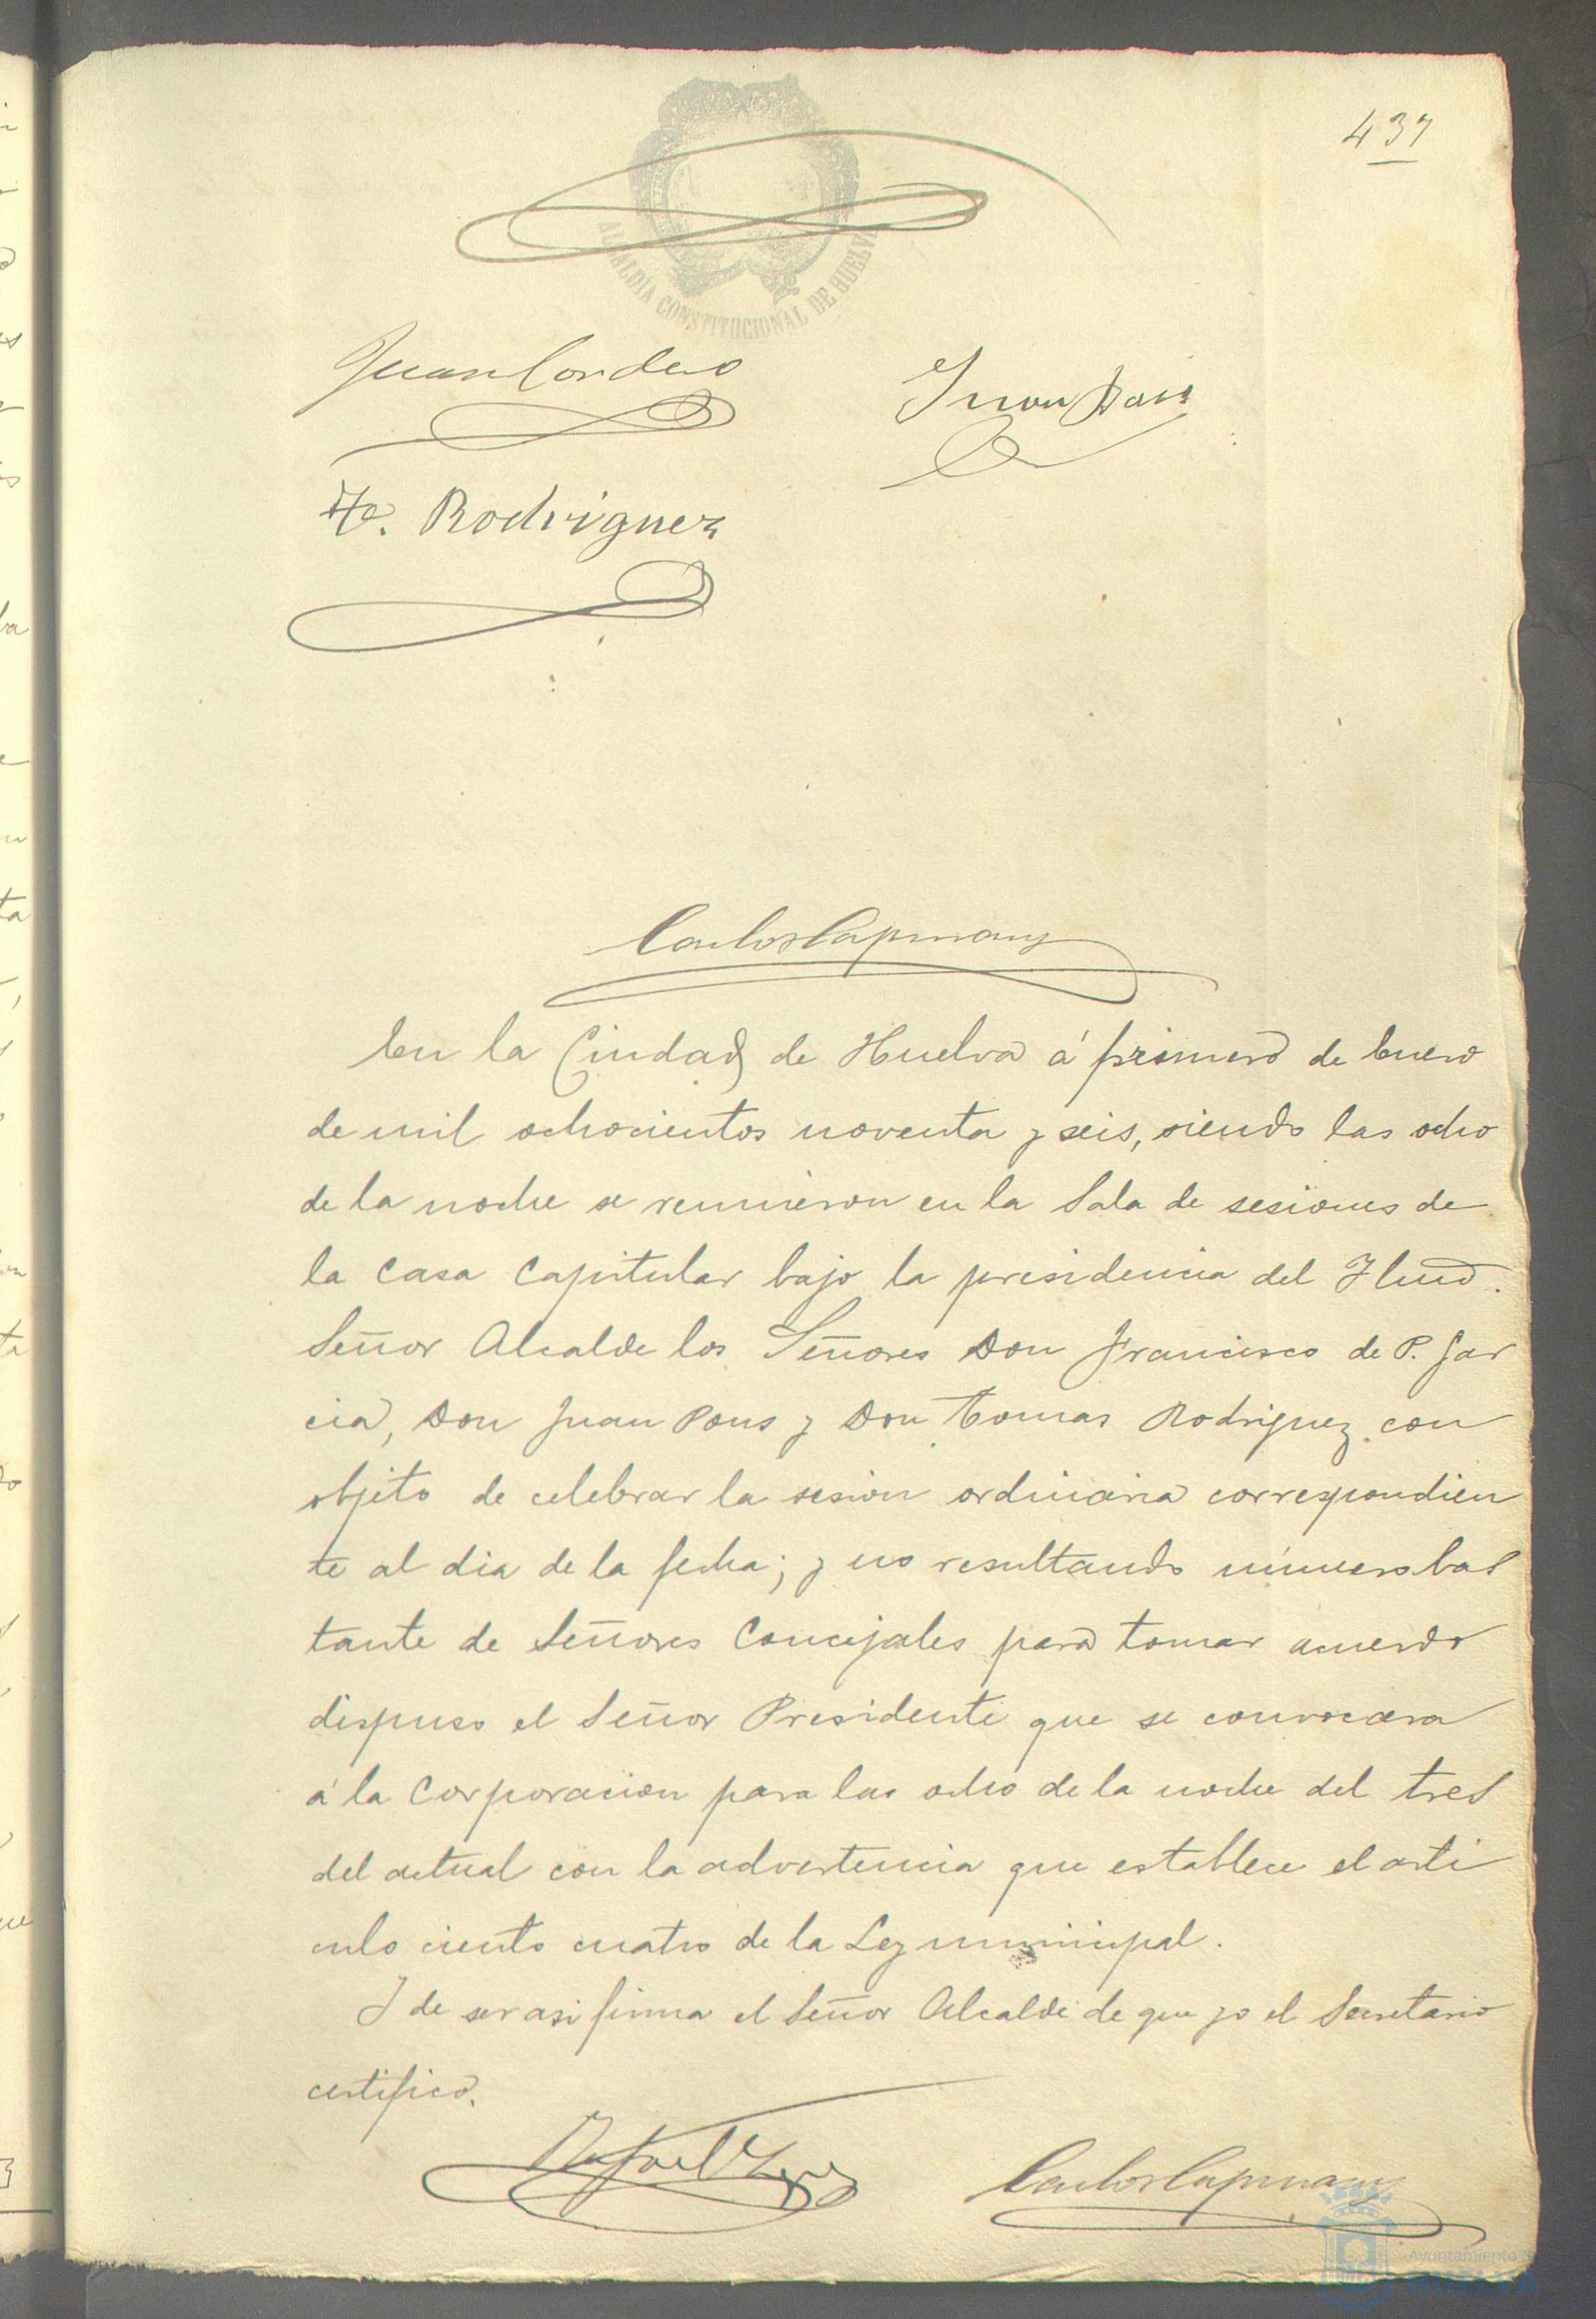 437
ALCALDÍA CONSTITUCIONAL DE HUELVA
Juan Cordero
Juan Pons
To. Rodriguez
Carlos Capmany
En la Ciudad de Huelva á primero de Enero
de mil ochocientos noventa y seis, siendo las ocho
de la noche se reunieron en la Sala de sesiones de
la Casa Capitular bajo la presidencia del Ilmo.
Señor Alcalde los Señores Don Francisco de P. Gar
cia, Don Juan Pons y Don Tomas Rodriguez con
objeto de celebrar la sesion ordinaria correspondien
te al dia de la fecha; y no resultando número bas
tante de Señores Concejales para tomar acuerdo
dispuso el Señor Presidente que se convocara
á la Corporacion para las ocho de la noche del tres
del actual con la advertencia que establece el arti
culo ciento cuatro de la Ley municipal.
Y de ser asi firma el Señor Alcalde de que yo el Secretario
certifico.
Rafael
Carlos Capmany
Ayuntamiento de
HUELVA